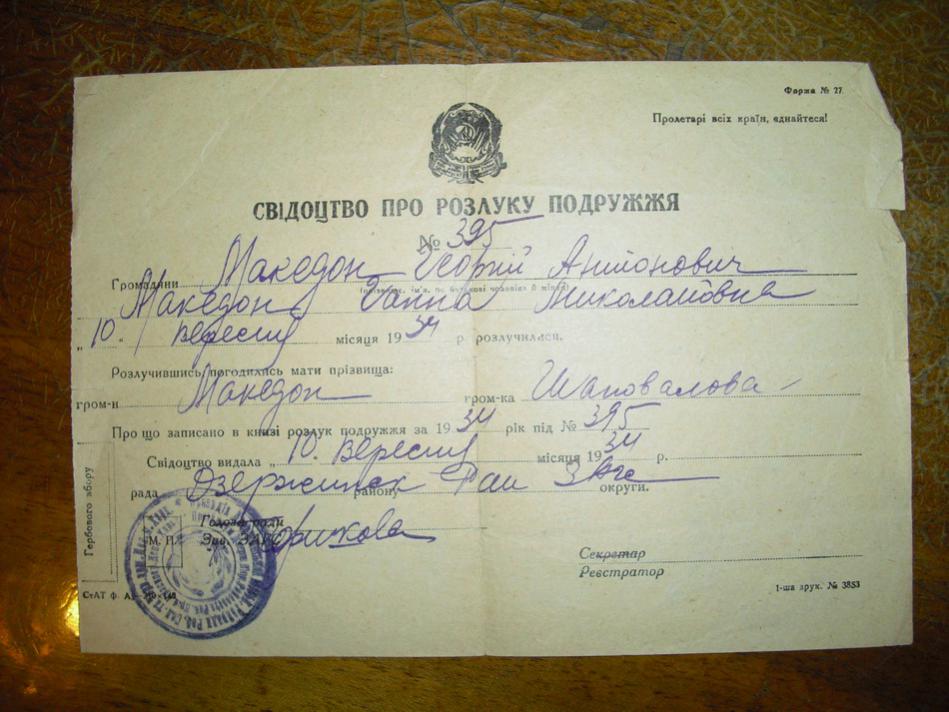 Форма № 27.
Пролетарі всіх країн, єднайтеся!
СВІДОЦТВО ПРО РОЗЛУКУ ПОДРУЖЖЯ
№ 395
Громадяни Македон Георгій Антонович
Македон Ганна Миколаївна
„10" вересня місяця 1934 р. розлучилися.
Розлучившись, погодились мати прізвища:
гром-н Македон гром-ка Шаповалова
Про що записано в книзі розлук подружжя за 1934 рік під № 395
Свідоцтво видала „10. вересня місяця 1934 р.
рада Дзержинск району Рай Загс округи.
Голова ради
М. П. Зав. ЗАГС
Секретар
Реєстратор
Гербового збору
1-ша друк. № 3853